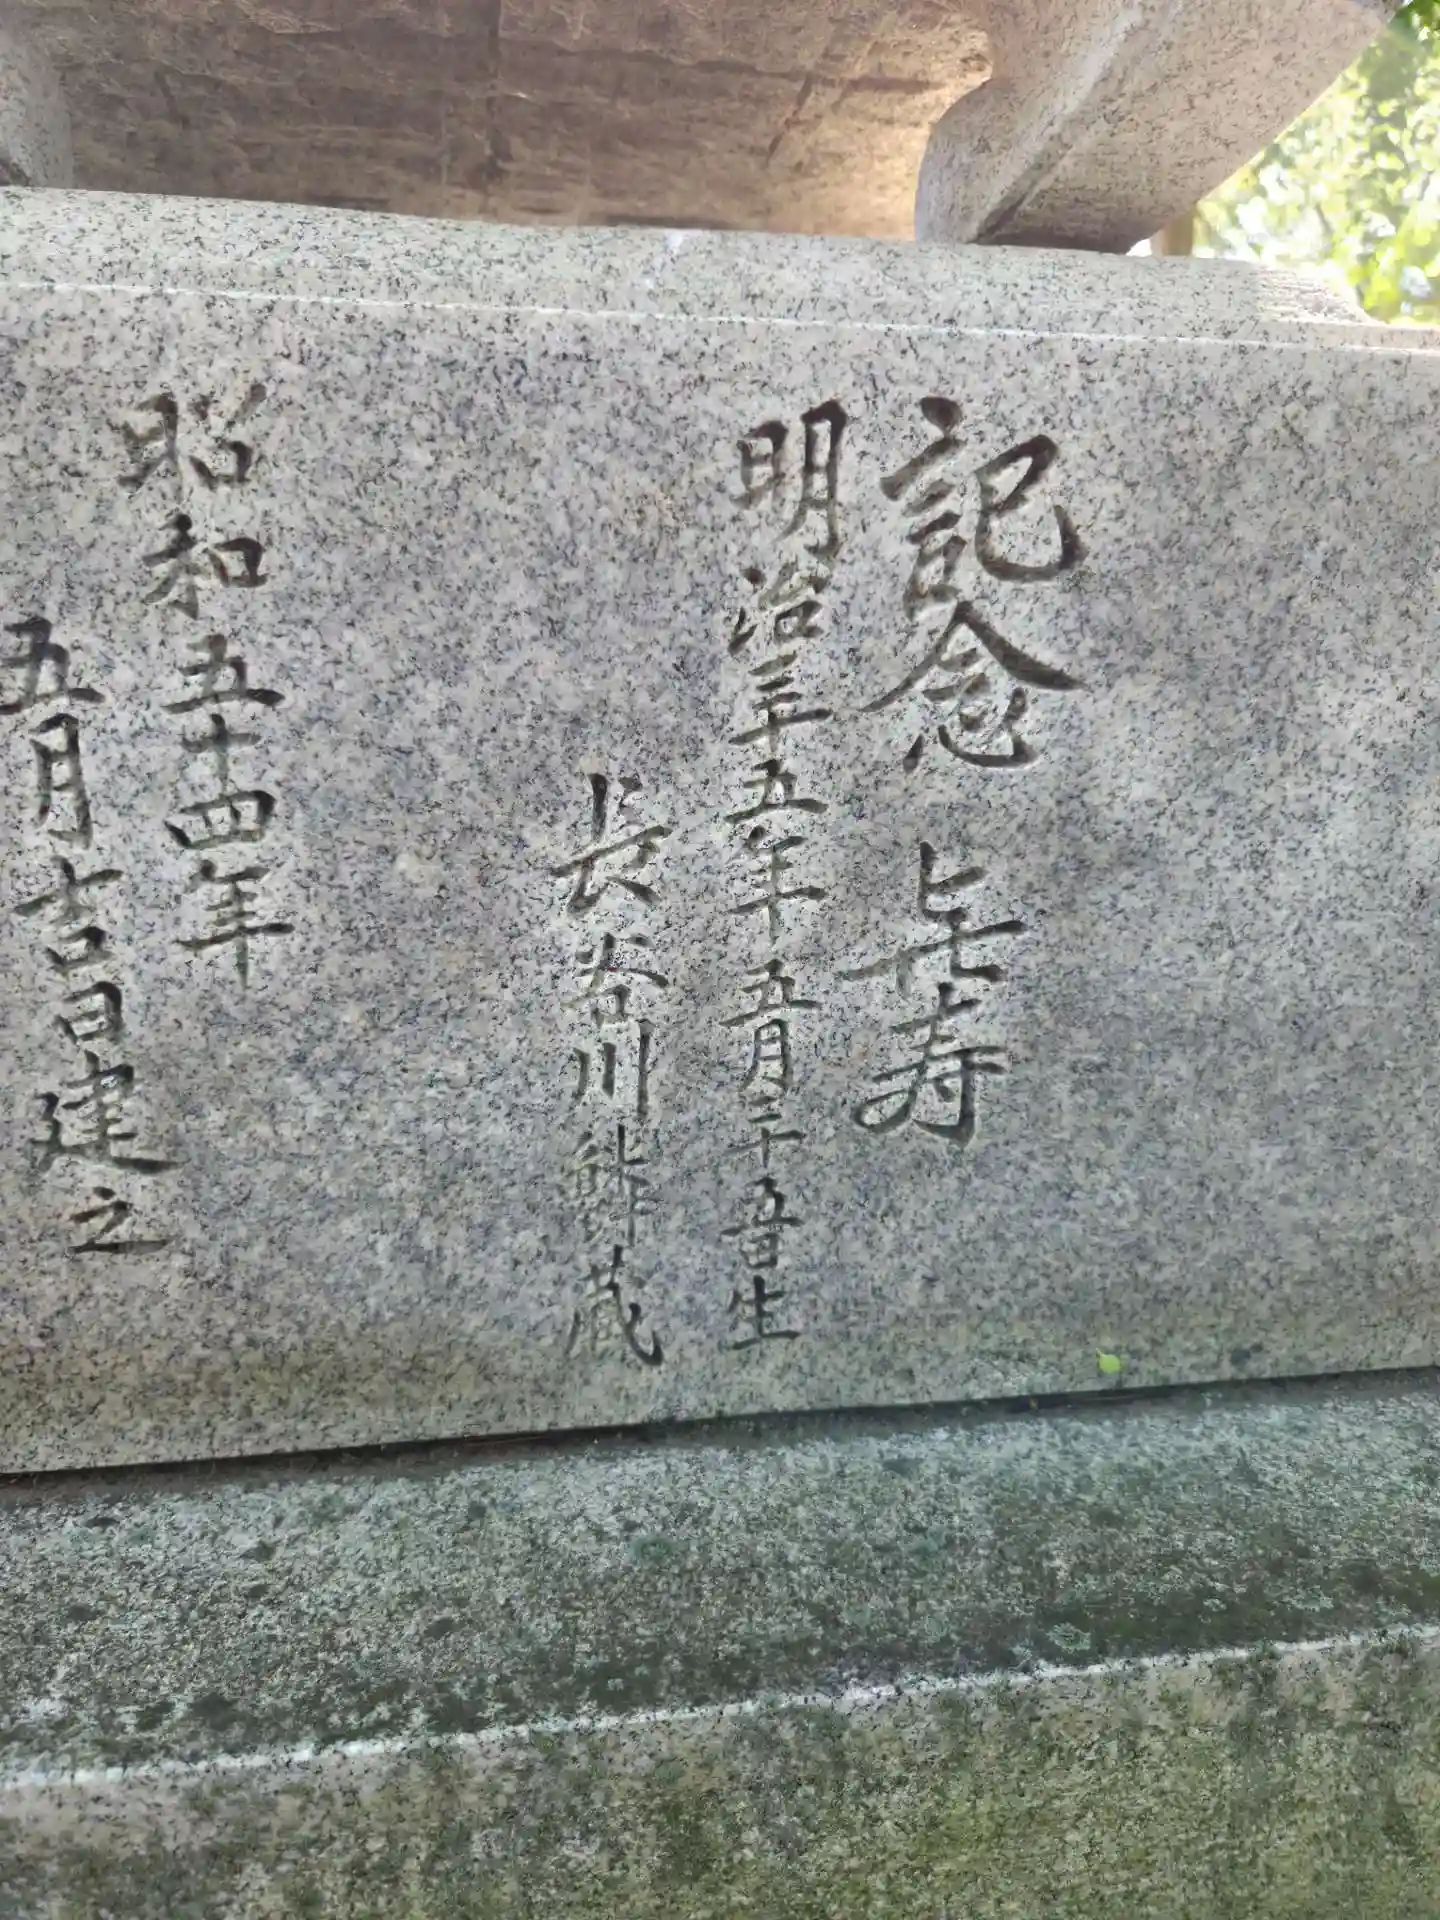 記念 㐂寿
明治三十五年五月二十五日生
長谷川 蔵
昭和五十四年
五月吉日建之